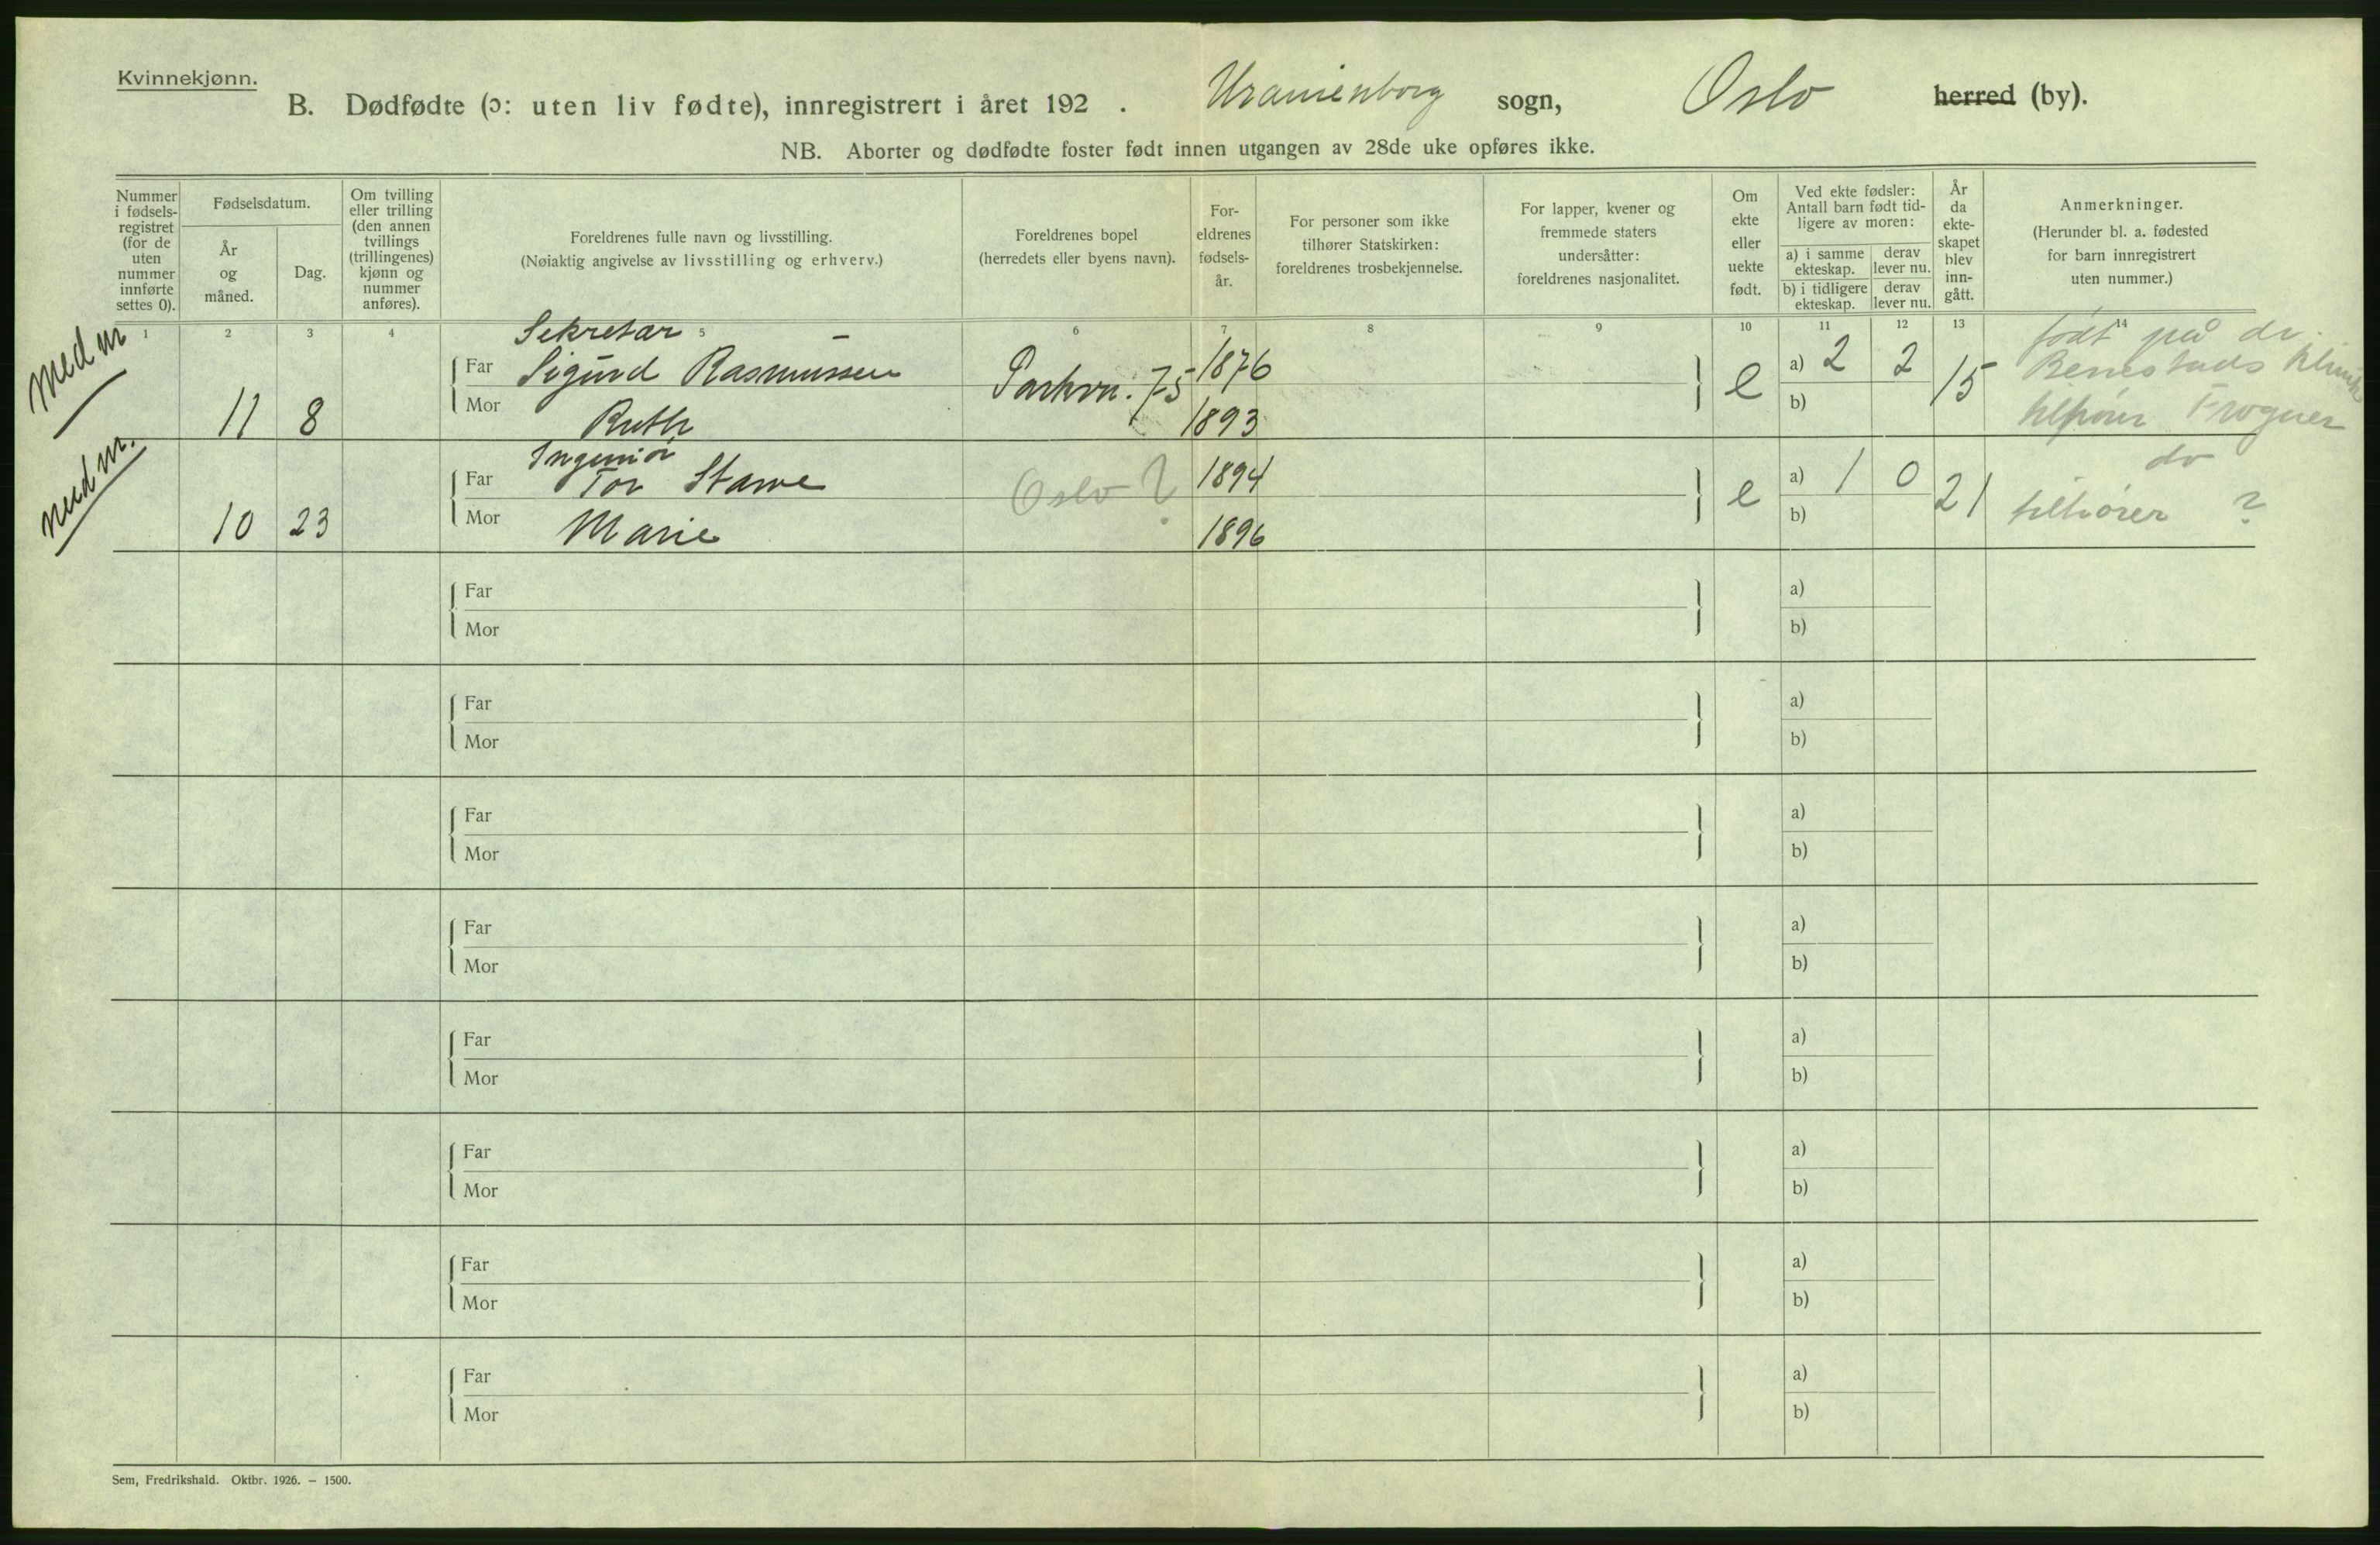 Kvinnekjønn.
B. Dødfødte (ɔ: uten liv fødte), innregistrert i året 192 . Uranienborg sogn, Oslo herred (by).
NB. Aborter og dødfødte foster født innen utgangen av 28de uke opføres ikke.
Nummer i fødsels-registret (for de uten nummer innførte settes 0).
Fødselsdatum.
År og måned.
Dag.
Om tvilling eller trilling (den annen tvillings (trillingenes) kjønn og nummer anføres).
Foreldrenes fulle navn og livsstilling.
(Nøiaktig angivelse av livsstilling og erhverv.)
Foreldrenes bopel
(herredets eller byens navn).
For-eldrenes fødsels-år.
For personer som ikke tilhører Statskirken: foreldrenes trosbekjennelse.
For lapper, kvener og fremmede staters undersåtter: foreldrenes nasjonalitet.
Om ekte eller uekte født.
Ved ekte fødsler: Antall barn født tid-ligere av moren:
a) i samme ekteskap. derav lever nu.
b) i tidligere ekteskap. derav lever nu.
År da ekte-skapet blev inn-gått.
Anmerkninger.
(Herunder bl. a. fødested for barn innregistrert uten nummer.)
1 2 3 4 5 6 7 8 9 10 11 12 13 14
Med nr
Sekretær
Far Sigurd Rasmussen
Mor Ruth
11 8
Parkvn. 75
1876
1893
e
a) 2 2
b)
15
født på dr.
Benestads klinik
tilhører Frogner
med nr.
Ingeniør
Far Tor Stame
Mor Marie
10 23
Oslo ?
1894
1896
e
a) 1 0
b)
21
do
tilhører ?
Far a)
Mor b)
Far a)
Mor b)
Far a)
Mor b)
Far a)
Mor b)
Far a)
Mor b)
Far a)
Mor b)
Far a)
Mor b)
Far a)
Mor b)
Sem, Fredrikshald. Oktbr. 1926. – 1500.